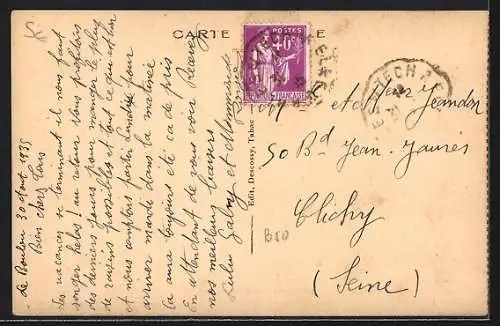 CARTE POSTALE
Le Boulou 30 Aout 1935
Bien chers tous
Les vacances se terminent il nous faut
songer hélas! au retour. Nous profitons
des derniers jours pour manger le plus
de raisins possibles et tout ce qui est bon
et nous comptons partir Lundi pour
arriver mardi dans la matinée
Ca aura toujours été ca de pris
En attendant de vous voir Recevez
nos meilleurs baisers
Lulu Gaby et
POSTES
40c
FRANÇAISE
TECH
Edit. Descossy, Tabac
et Henry Jeandon
50 Bd Jean-Jaurès
Clichy
(Seine)
B50